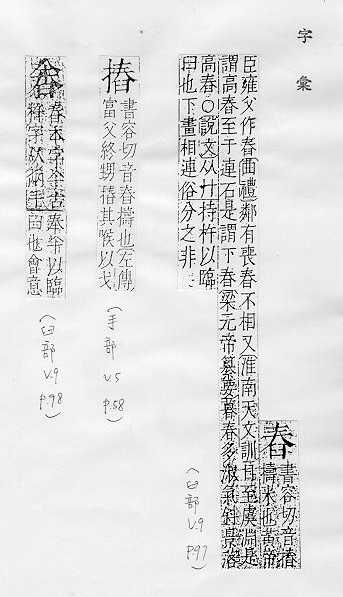 字彙
舂
書容切音椿
擣米也黃帝
臣雍父作舂曲禮鄰有喪舂不相又淮南天文訓日至虞淵是
謂高舂至于連石是謂下舂梁元帝纂要暮舂多淑氣斜景落
高舂○說文从廾持杵以臨
臼也下畫相連俗分之非
(臼部 V.9 P.97)
摏
書容切音舂擣也左傳
富父終甥摏其喉以戈
(手部 V.5 P.58)
舂本字
釋字从廾手臼也會意
(臼部 V.9 P.98)